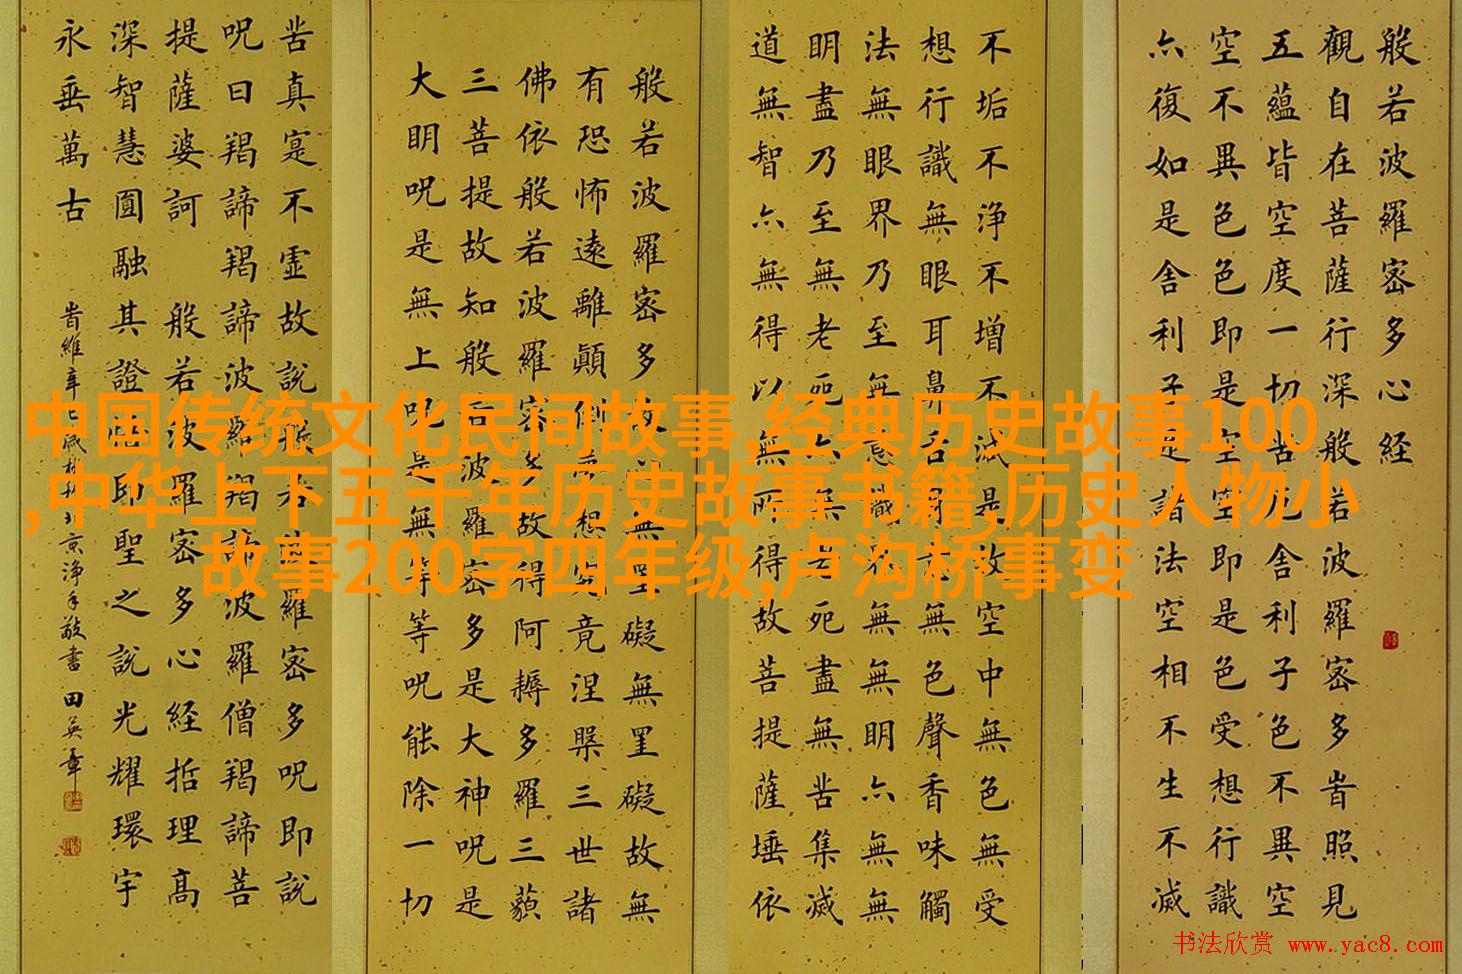 般若波羅密多心経
觀自在菩薩行深般若波羅密多旹照見
五蘊皆空度一切苦厄舍利子色不異空
空不異色色即是空空即是色受想行識
亦復如是舍利子是諸法空相不生不滅
不垢不浄不增不減是故空中無色無受
想行識無眼耳鼻舌身意無色聲香味觸
法無眼界乃至無意識界無無明亦無無
明盡乃至無老死亦無老死盡無苦集滅
道無智亦無得以無所得故菩提薩埵依
般若波羅密多故心無罣礙無罣礙故無
有恐怖遠離顛倒夢想究竟涅槃三世諸
佛依般若波羅密多故得阿耨多羅三藐
三菩提故知般若波羅密多是大神呪是
大明呪是無上呪是無等等呪能除一切
苦真寔不虛故説般若波羅密多呪即説
呪曰羯諦羯諦波羅羯諦波羅僧羯諦菩
提薩婆訶 般若波羅密多心経括理高
深智慧圓融其證即聖之説光耀環宇
永垂萬古
旹維辛京浄手敬書 田英章
中国传统文化民间故事,经典历史故事100
,中华上下五千年历史故事书籍,历史人物小
故事200字四年级,卢沟桥事变
书法欣赏 www.yac8.com